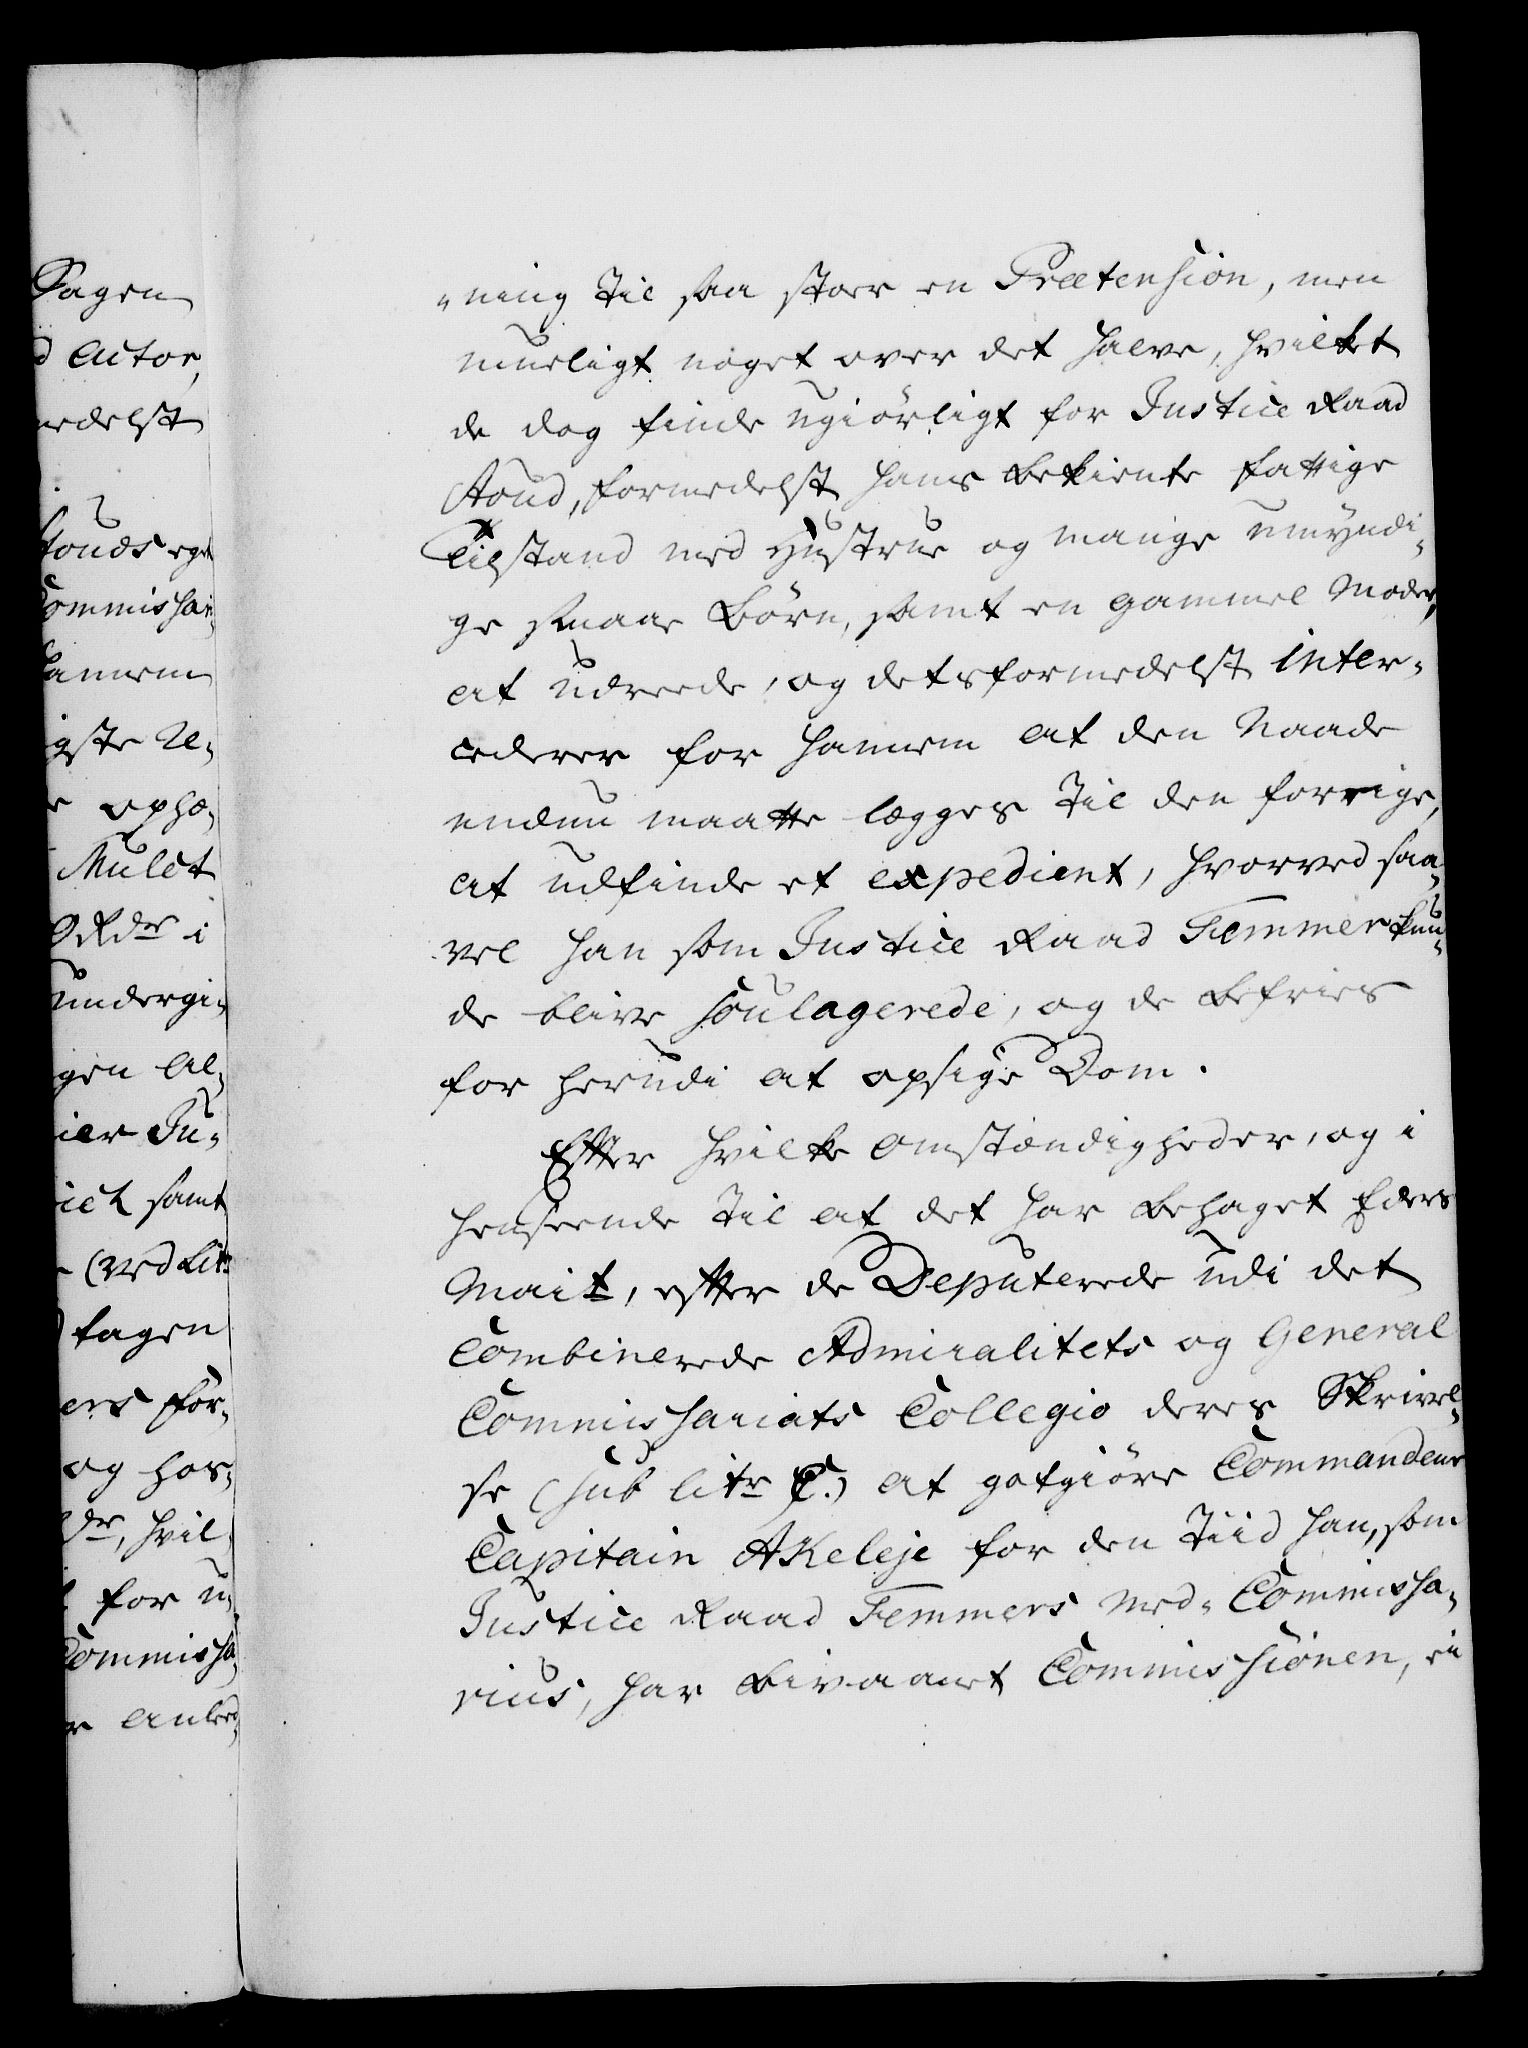 Sagen
d Actor,
medelst
Stouds eget
Commissari-
hannem
igste Ue-
e opho-
Mulct
0 Rdr i
undergi-
gen Al-
ier Ju-
ich samt
(ved Litr
tagen
ers for-
og hos-
dr, hvil-
for u-
Commissa-
r anled-
-ning til saa stoer en Prætension, men
mueligt noget over det halve, hvilket
de dog finde ugiörligt for Justice Raad
Stoud, formedelst hans bekiente fattige
Tilstand med Hustrue og mange umyndi-
ge smaae Börn, samt en gammel Moder,
at udreede, og detsformedelst inter-
cederer for hannem at den Naade
endnu maatte legges til den forrige,
at udfinde et expedient, hvorved saa-
vel han som Justice Raad Femmer kun-
de blive soulagerede, og de befries
for herudi at opsige Dom.
Efter hvilke Omstændigheder, og i
henseende til at det har behaget Eders
Mait, efter de Deputerede udi det
Combinerede Admiralitets og General
Commissariats Collegio deres Skrivel-
se (sub litr C.) at gotgiöre Commandeur
Capitain Akeleje for den Tiid han, som
Justice Raad Femmers Med-Commissa-
rius, har bivaanet Commissionen, en